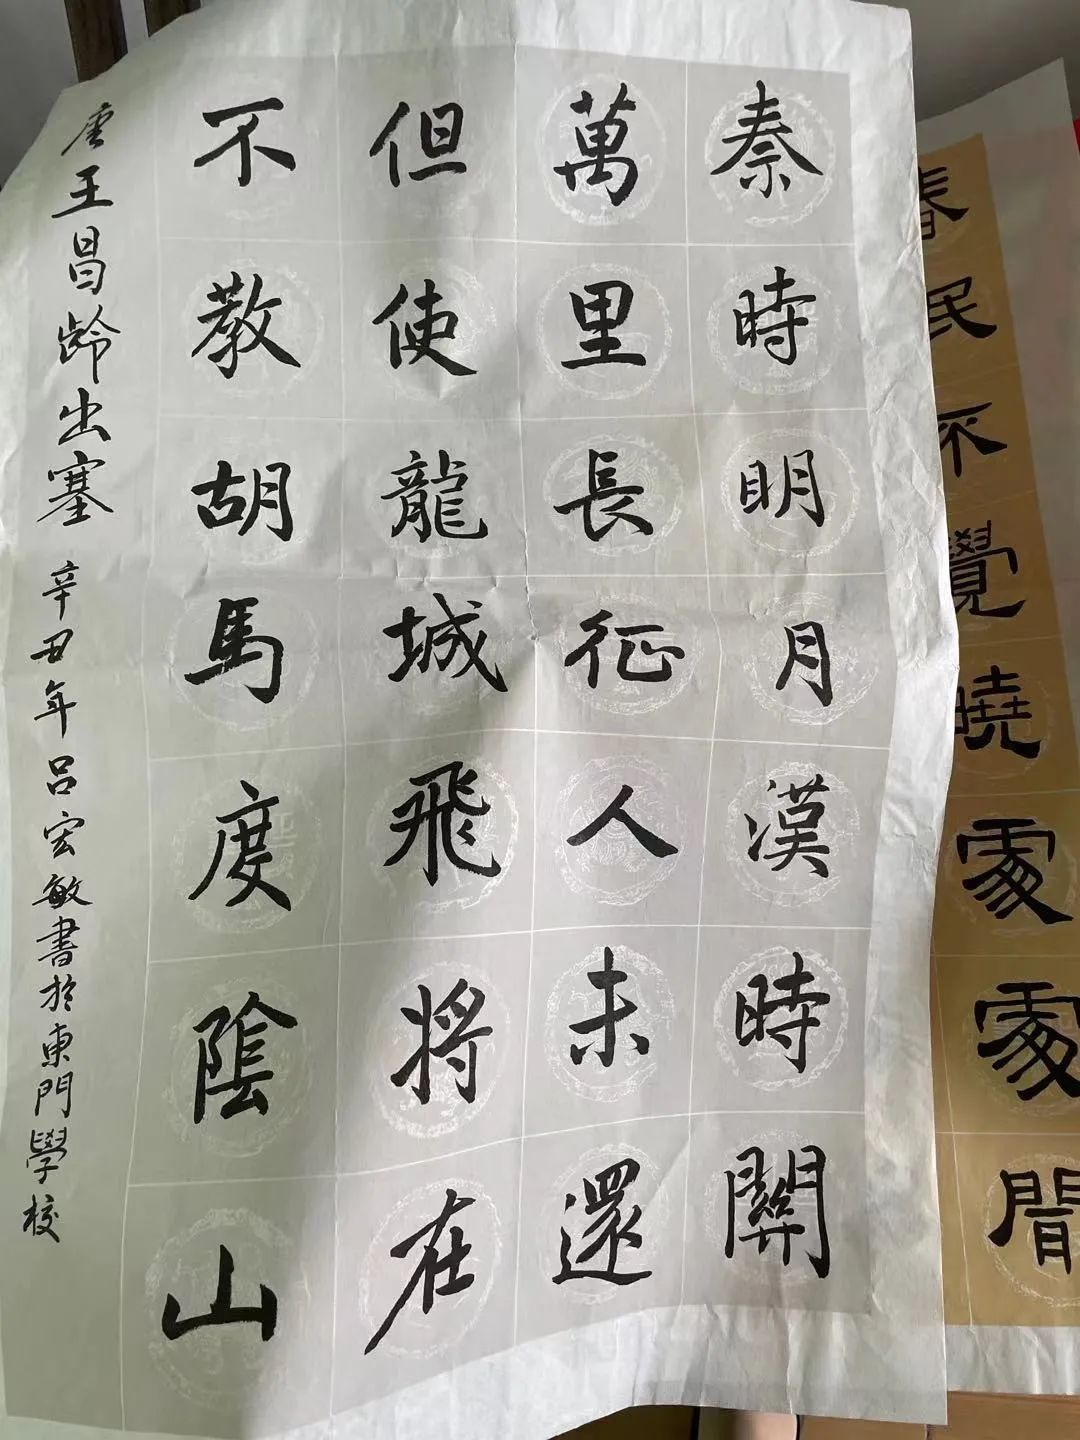 秦時明月漢時關
萬里長征人未還
但使龍城飛將在
不教胡馬度陰山
唐王昌龄出塞 辛丑年吕宏敏書於東門學校
春眠不覺曉處處聞